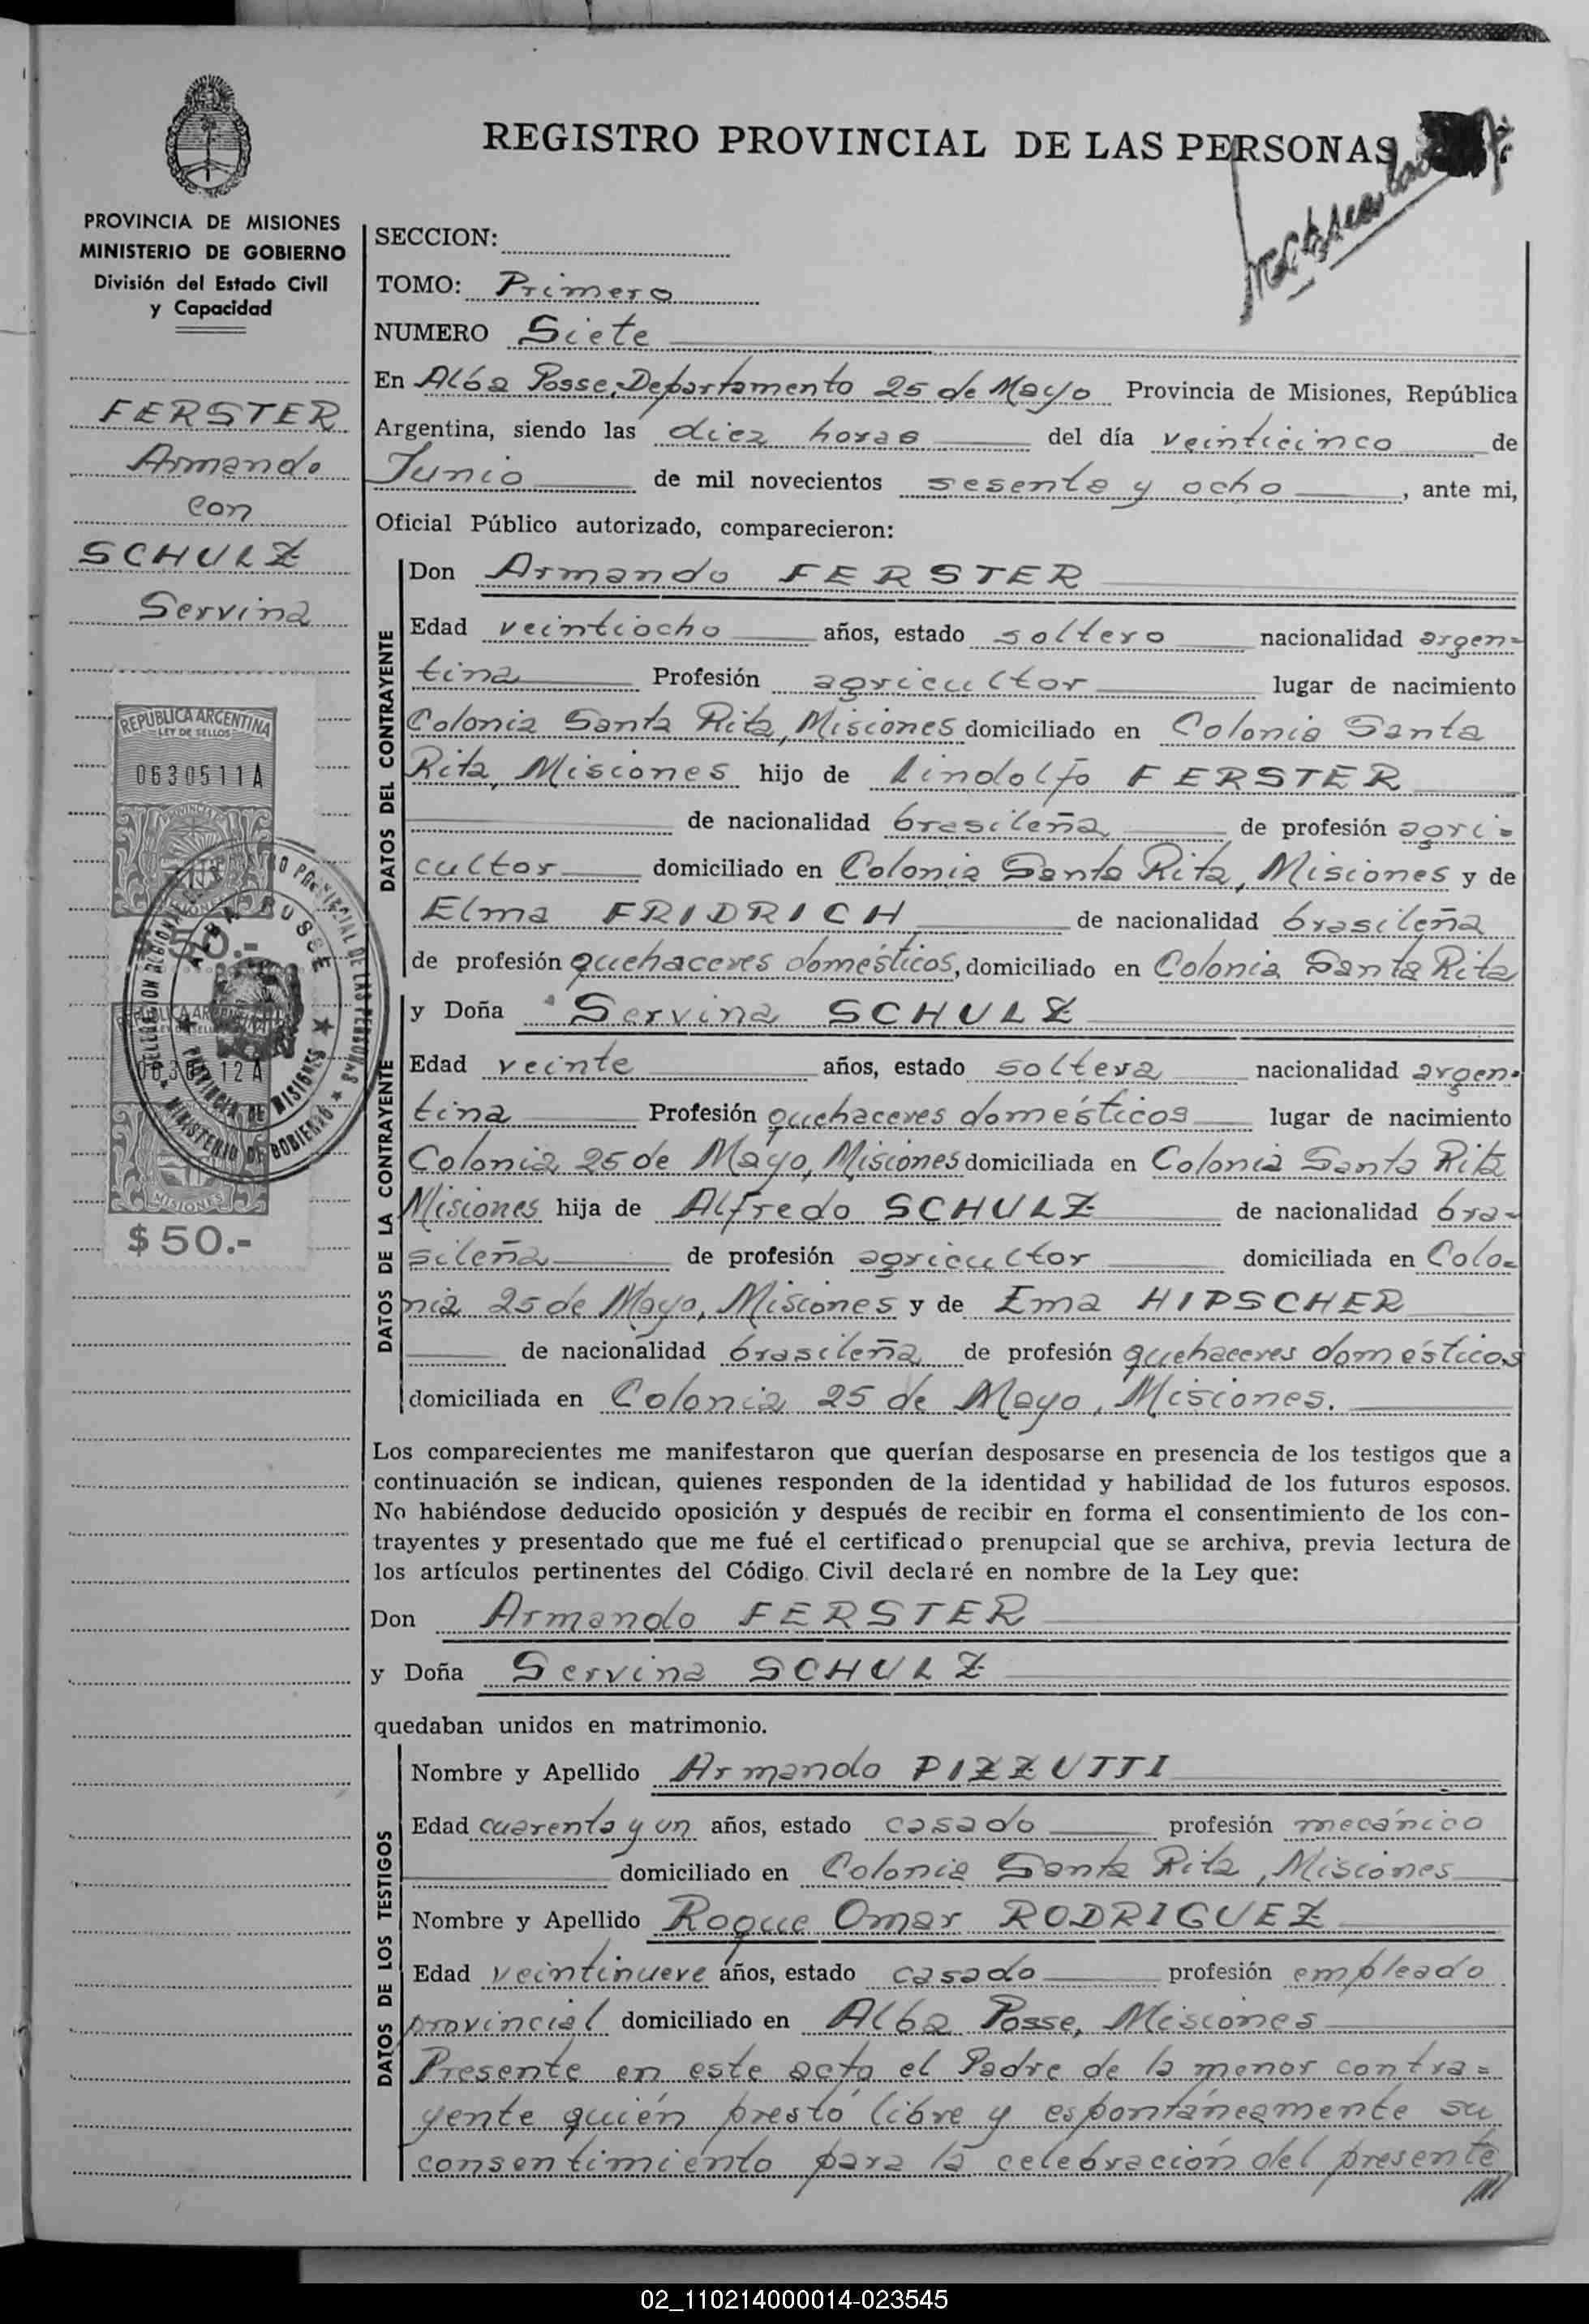 REGISTRO PROVINCIAL DE LAS PERSONAS
PROVINCIA DE MISIONES
MINISTERIO DE GOBIERNO
División del Estado Civil
y Capacidad
FERSTER
Armando
con
SCHULZ
Servina
REPUBLICA ARGENTINA
LEY DE SELLOS
0630511A
MISIONES
$50.-
ALBA POSSE
PROVINCIA DE MISIONES
MINISTERIO DE GOBIERNO
MISIONES
$50.-
SECCION:
TOMO: Primero
NUMERO Siete
En Alba Posse, Departamento 25 de Mayo Provincia de Misiones, República
Argentina, siendo las diez horas del día veinticinco de
Junio de mil novecientos sesenta y ocho, ante mi,
Oficial Público autorizado, comparecieron:
DATOS DEL CONTRAYENTE
Don Armando FERSTER
Edad veintiocho años, estado soltero nacionalidad argen-
tina Profesión agricultor lugar de nacimiento
Colonia Santa Rita, Misiones domiciliado en Colonia Santa
Rita, Misiones hijo de Lindolfo FERSTER
de nacionalidad brasileña de profesión agri-
cultor domiciliado en Colonia Santa Rita, Misiones y de
Elma FRIDRICH de nacionalidad brasileña
de profesión quehaceres domésticos, domiciliado en Colonia Santa Rita
DATOS DE LA CONTRAYENTE
y Doña Servina SCHULZ
Edad veinte años, estado soltera nacionalidad argen-
tina Profesión quehaceres domésticos lugar de nacimiento
Colonia 25 de Mayo, Misiones domiciliada en Colonia Santa Rita
Misiones hija de Alfredo SCHULZ de nacionalidad bra-
sileña de profesión agricultor domiciliada en Colo-
nia 25 de Mayo, Misiones y de Ema HIPSCHER
de nacionalidad brasileña de profesión quehaceres domésticos
domiciliada en Colonia 25 de Mayo, Misiones.
Los comparecientes me manifestaron que querían desposarse en presencia de los testigos que a
continuación se indican, quienes responden de la identidad y habilidad de los futuros esposos.
No habiéndose deducido oposición y después de recibir en forma el consentimiento de los con-
trayentes y presentado que me fué el certificado prenupcial que se archiva, previa lectura de
los artículos pertinentes del Código Civil declaré en nombre de la Ley que:
Don Armando FERSTER
y Doña Servina SCHULZ
quedaban unidos en matrimonio.
DATOS DE LOS TESTIGOS
Nombre y Apellido Armando PIZZUTTI
Edad cuarenta y un años, estado casado profesión mecánico
domiciliado en Colonia Santa Rita, Misiones
Nombre y Apellido Roque Omar RODRIGUEZ
Edad veintinueve años, estado casado profesión empleado
provincial domiciliado en Alba Posse, Misiones
Presente en este acto el Padre de la menor contra=
yente quién prestó libre y espontáneamente su
consentimiento para la celebración del presente
////
02_110214000014-023545